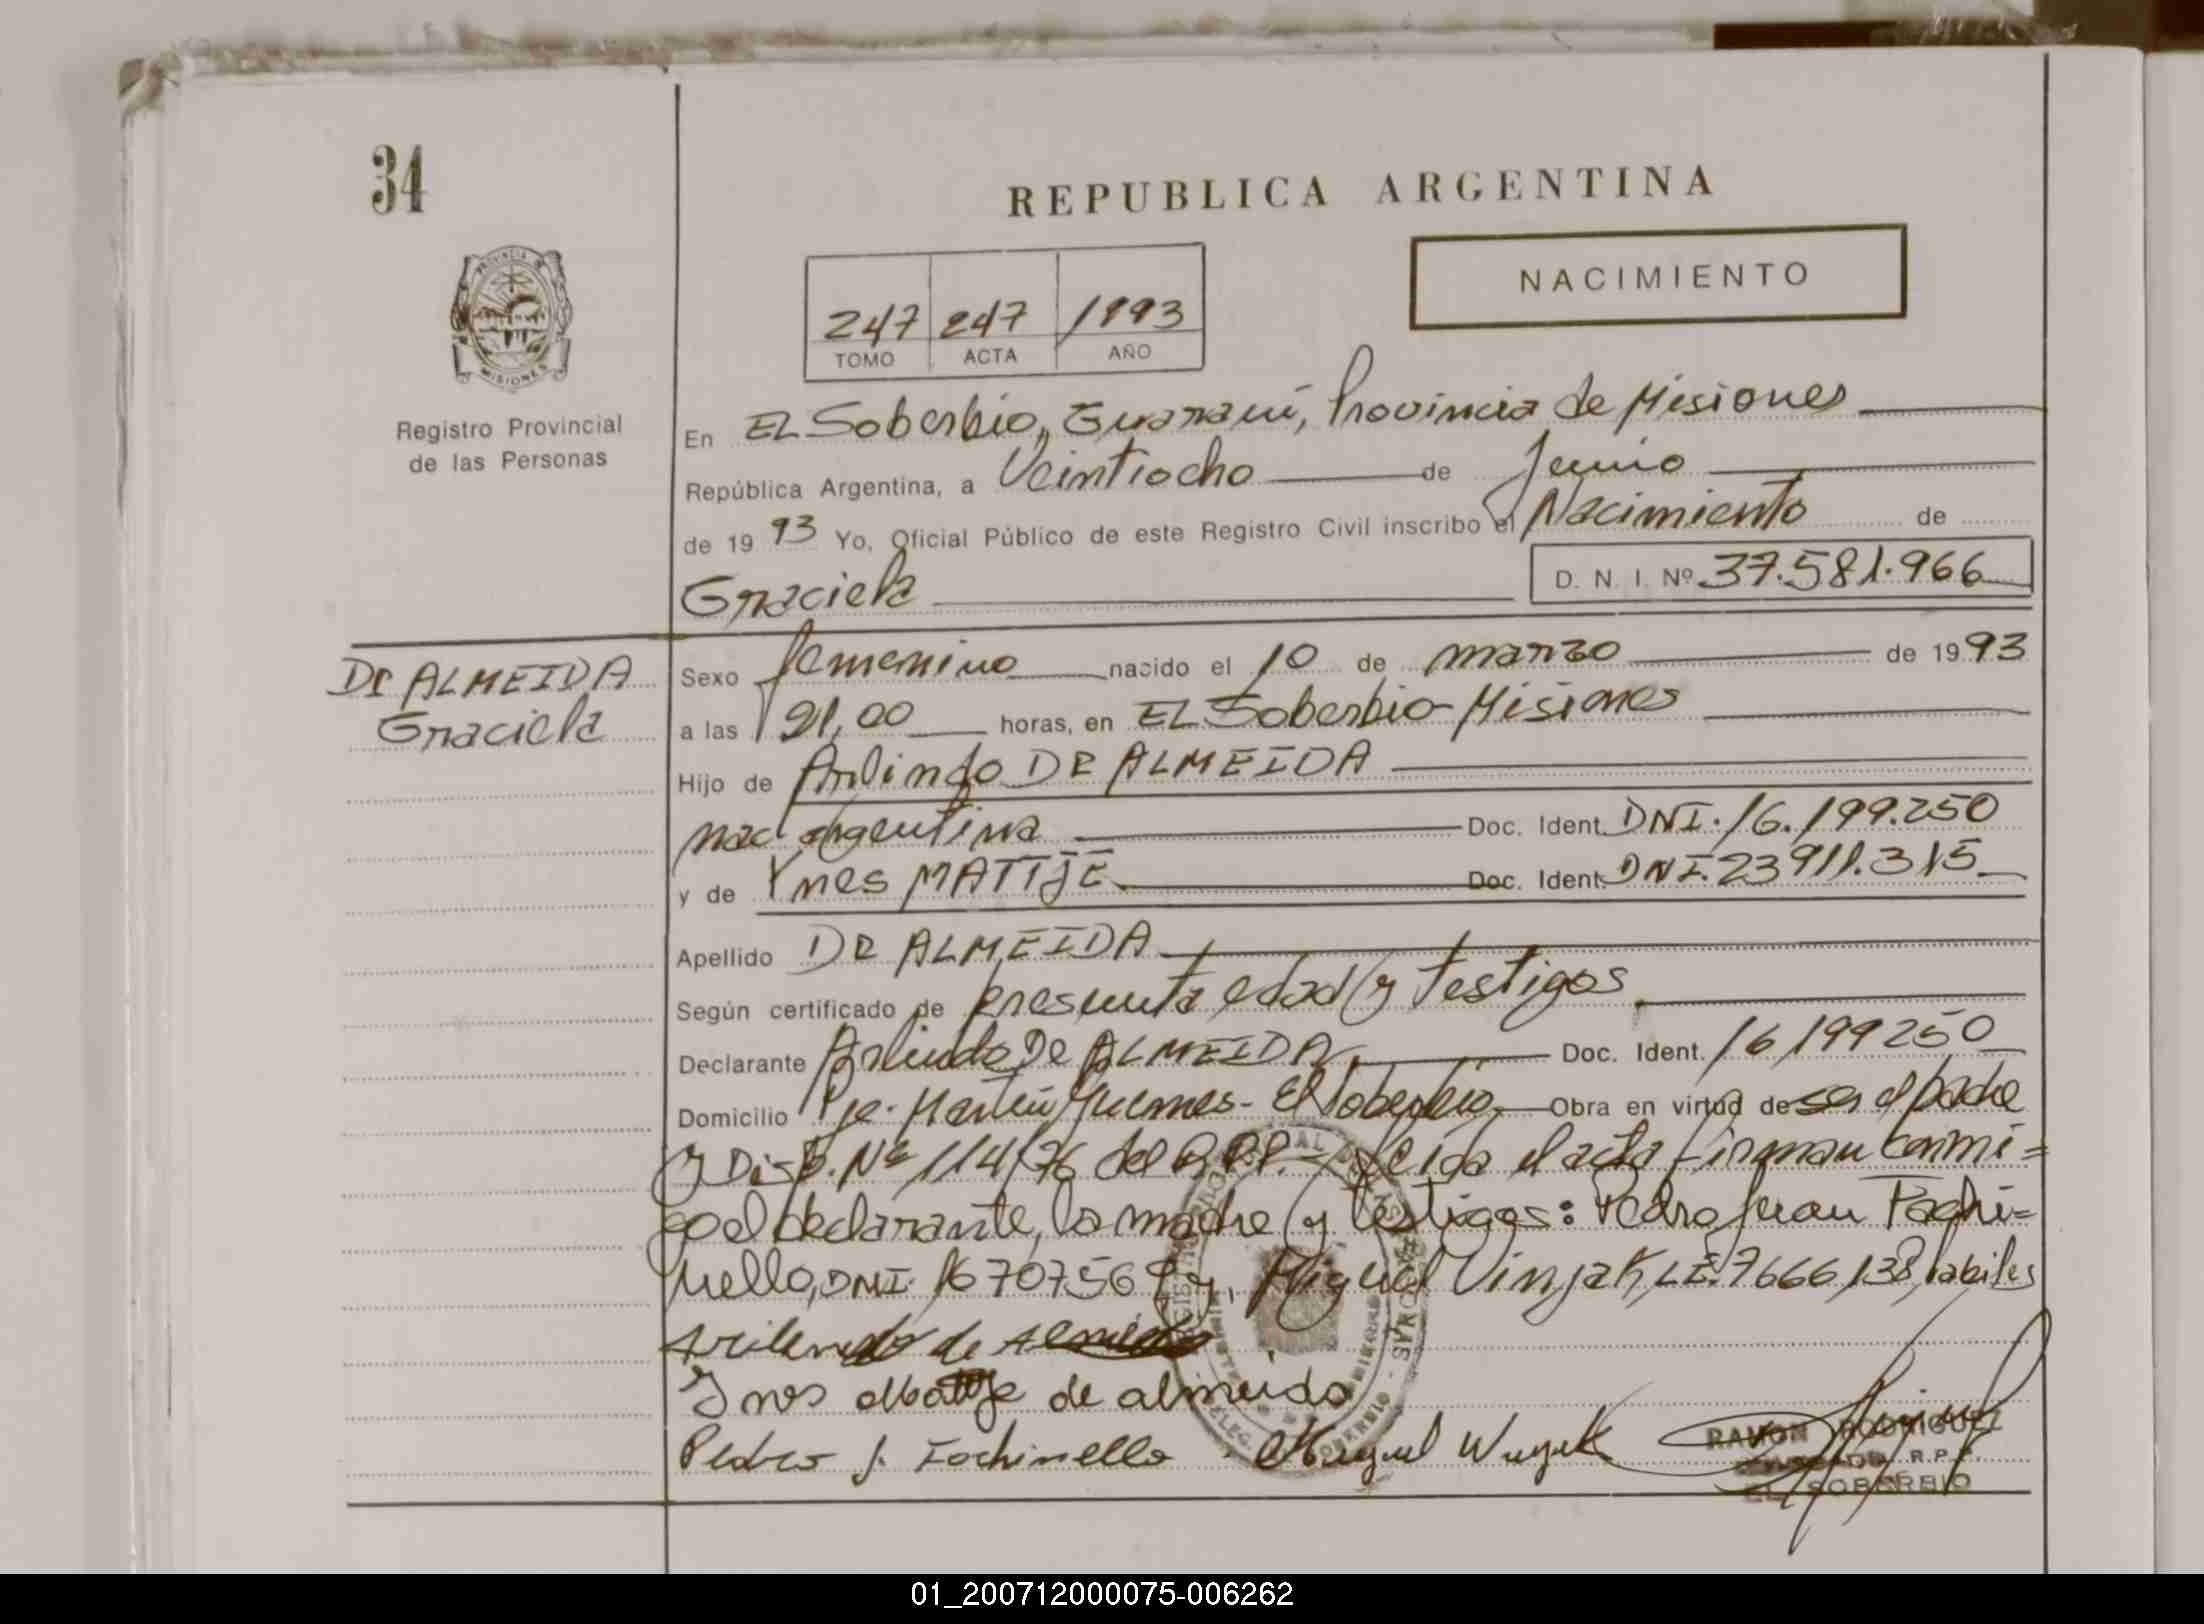 34
REPUBLICA ARGENTINA
NACIMIENTO
247 247 1993
TOMO ACTA AÑO
PROVINCIA DE
MISIONES
Registro Provincial
de las Personas
En EL Soberbio, Guaraní, Provincia de Misiones
República Argentina, a Veintiocho de Junio
de 1993 Yo, Oficial Público de este Registro Civil inscribo el Nacimiento de
Graciela D. N. I. Nº 37.581.966
DE ALMEIDA
Graciela
Sexo femenino nacido el 10 de marzo de 1993
a las 21,00 horas, en EL Soberbio - Misiones
Hijo de Arlindo DE ALMEIDA
nac argentina Doc. Ident. DNI. 16.199.250
y de Ynes MATTJE Doc. Ident. DNI. 23911.315
Apellido DE ALMEIDA
Según certificado de presunta edad y testigos
Declarante Arlindo DE ALMEIDA Doc. Ident. 16199250
Domicilio Pje. Martín Guemes - El Soberbio, Obra en virtud de ser el padre
y Disp. Nº 114/76 del R.P.P. - Leída el acta firman conmi=
go el declarante, la madre y testigos: Pedro Juan Fachi=
nello, DNI. 16707569 y, Miguel Vinjak, LE. 7666138, habiles
de
Ynes de almeida
Pedro J. Fachinello Miguel
RAMON RODRIGUEZ
R.P.P.
EL SOBERBIO
01_200712000075-006262